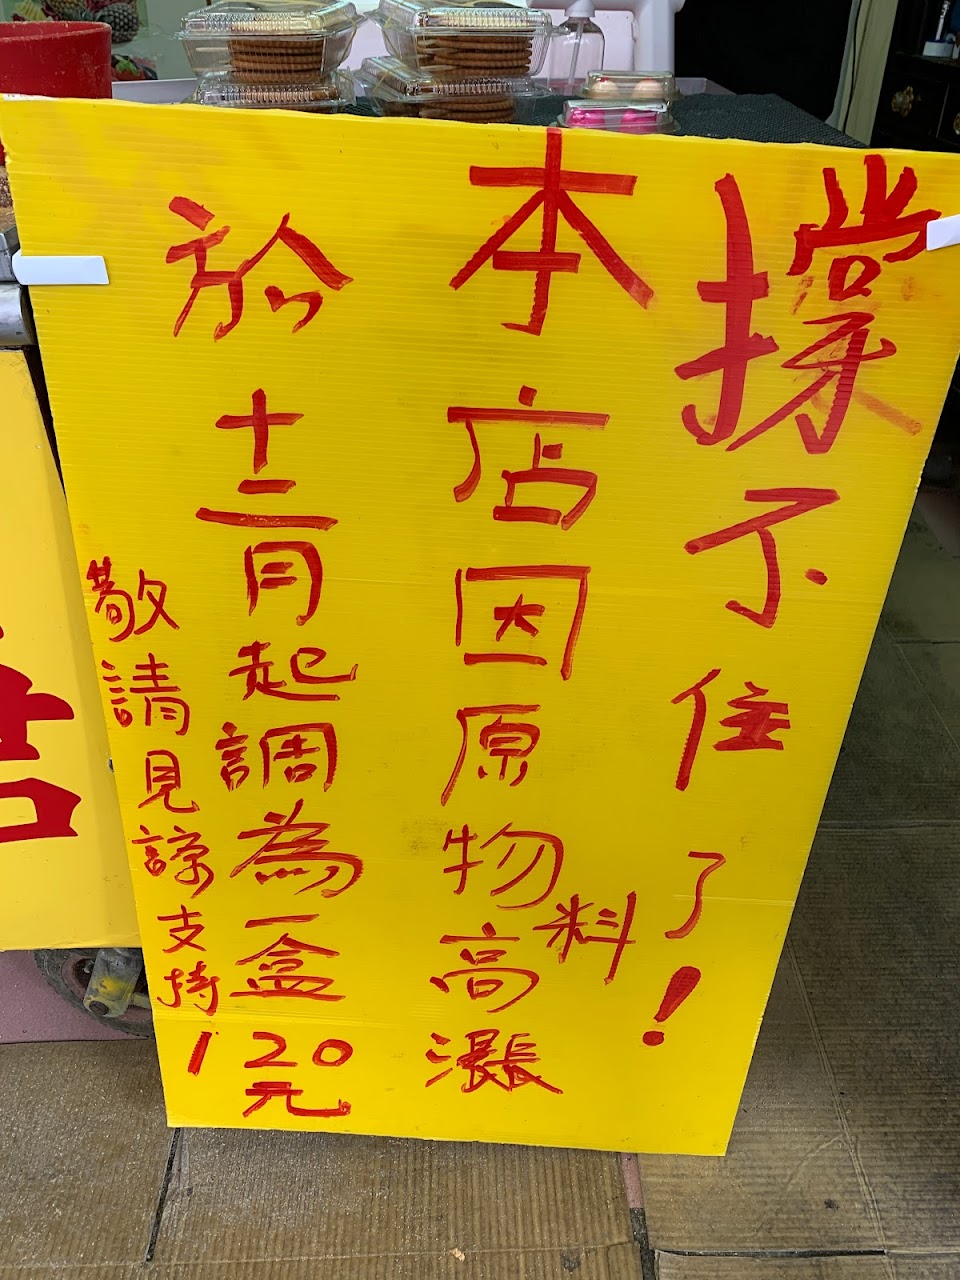 撑不住了!
本店因原物料高漲
於十二月起調為一盒120元
敬請見諒支持